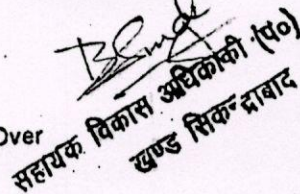 Over
सहायक विकास अधिकारी (पं०)
खण्ड सिकन्द्राबाद